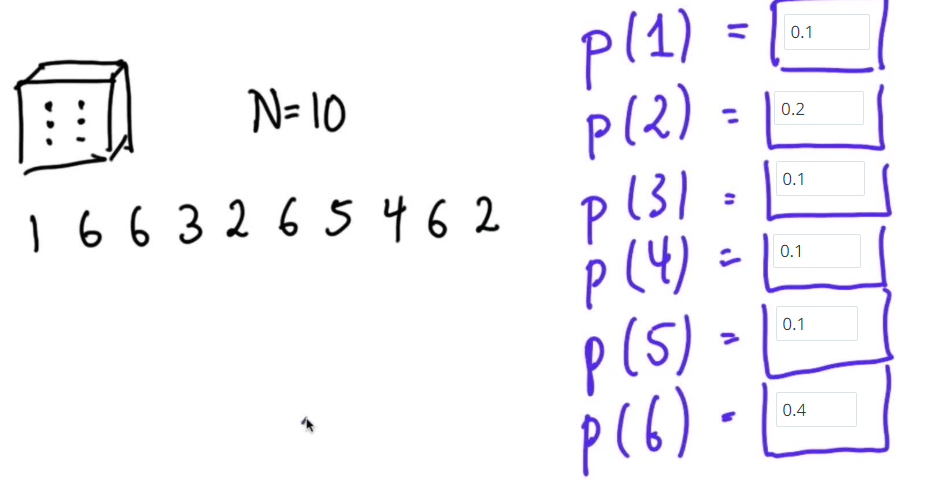 N=10
1 6 6 3 2 6 5 4 6 2
p(1) = 0.1
p(2) = 0.2
p(3) = 0.1
p(4) = 0.1
p(5) = 0.1
p(6) = 0.4